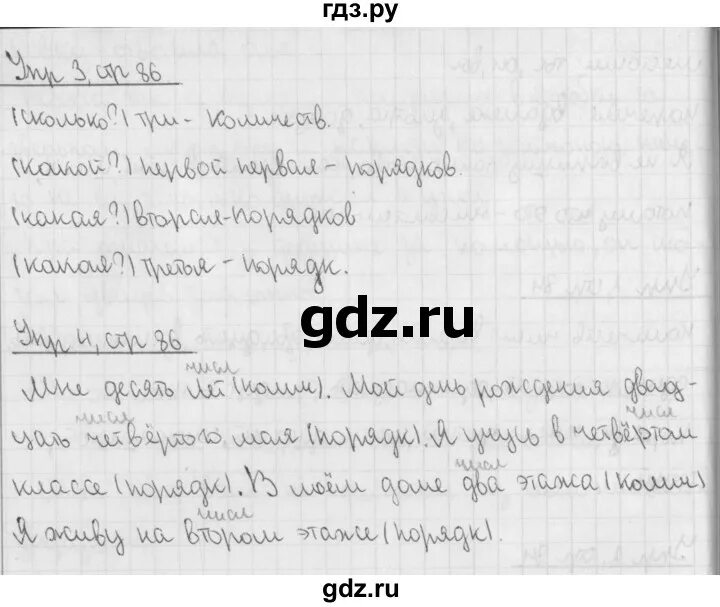 гдз.ру
Упр 3, стр 86
(сколько?) три - количеств.
(какой?) первой первая - порядков.
(какая?) вторая - порядков
(какая?) третья - порядк.
gdz.ru
Упр 4, стр 86
числ
Мне десять лет (колич). Мой день рождения двад-
числ числ
цать четвёртого мая (порядк). Я учусь в четвёртом
числ
классе (порядк). В моём доме два этажа (колич)
числ
Я живу на втором этаже (порядк).
gdz.ru